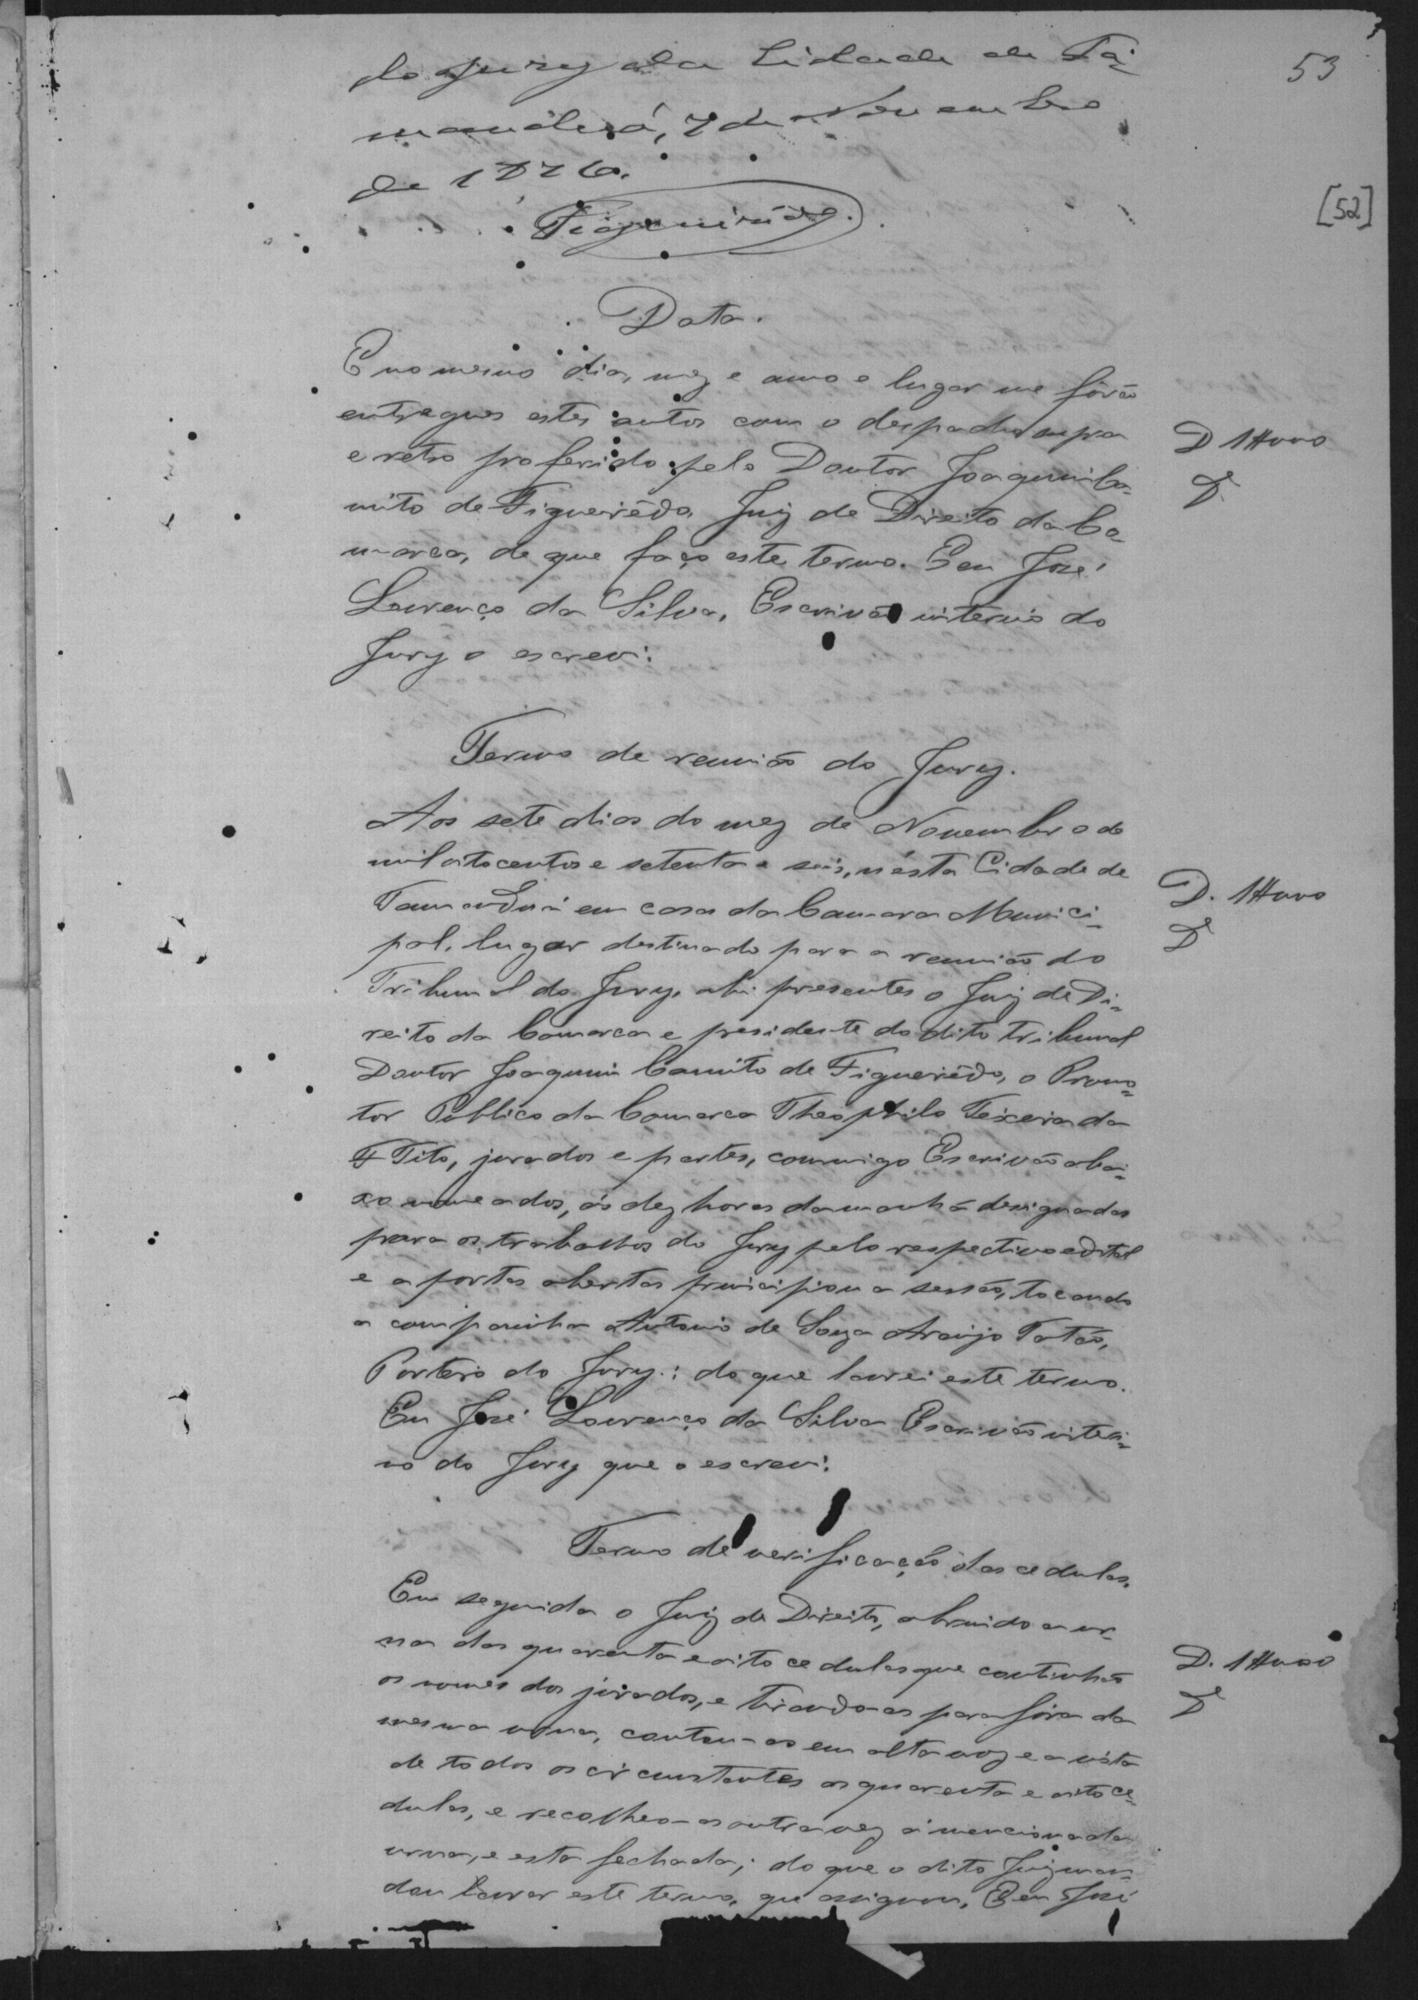 53
[52]
do jury da Cidade de Ta-
manduá, 7 de Novembro
de 1876.
Figueirêdo.
Data.
E no mesmo dia, mez e anno e lugar me fôrão
entregues estes autos com o despacho supra
e retro proferido pelo Doutor Joaquim Ca-
nuto de Figueirêdo, Juiz de Direito da Co-
marca, de que faço este termo. E eu José
Lourenço da Silva, Escrivão interino do
Jury o escrevi.
D
Termo de reunião do Jury.
Aos sete dias do mez de Novembro de
mil oitocentos e setenta e seis, nésta Cidade de
Tamanduá em casa da Camara Munici-
pal, lugar destinado para a reunião do
Tribunal do Jury, ahi presentes o Juiz de Di-
reito da Comarca e presidente do dito tribunal
Doutor Joaquim Canuto de Figueirêdo, o Promo-
tor Publico da Comarca Theophilo Teixeira da
F Tito, jurados e partes, commigo Escrivão abai-
xo nomeados, ás dez horas da manhã designadas
para os trabalhos do Jury pelo respectivo edital
e a portas abertas principiou a sessão, tocando
a campainha Antonio de Souza Araujo Tatão,
Porteiro do Jury: do que lavrei este termo.
Eu José Lourenço da Silva Escrivão interi-
no do Jury que o escrevi.
D.
Termo de verificação das cedulas.
Em seguida o Juiz de Direito, abrindo a ur-
na das quarenta e oito cedulas que continhão
os nomes dos jurados, e tirando-as para fóra da
mesma urna, contou-as em alta voz e a vista
de todos os circunstantes as quarenta e oito ce-
dulas, e recolheo-as outra vez á mencionada
urna, e esta fechada; do que o dito Juiz man-
dou lavrar este termo, que assignou, E eu José
D.